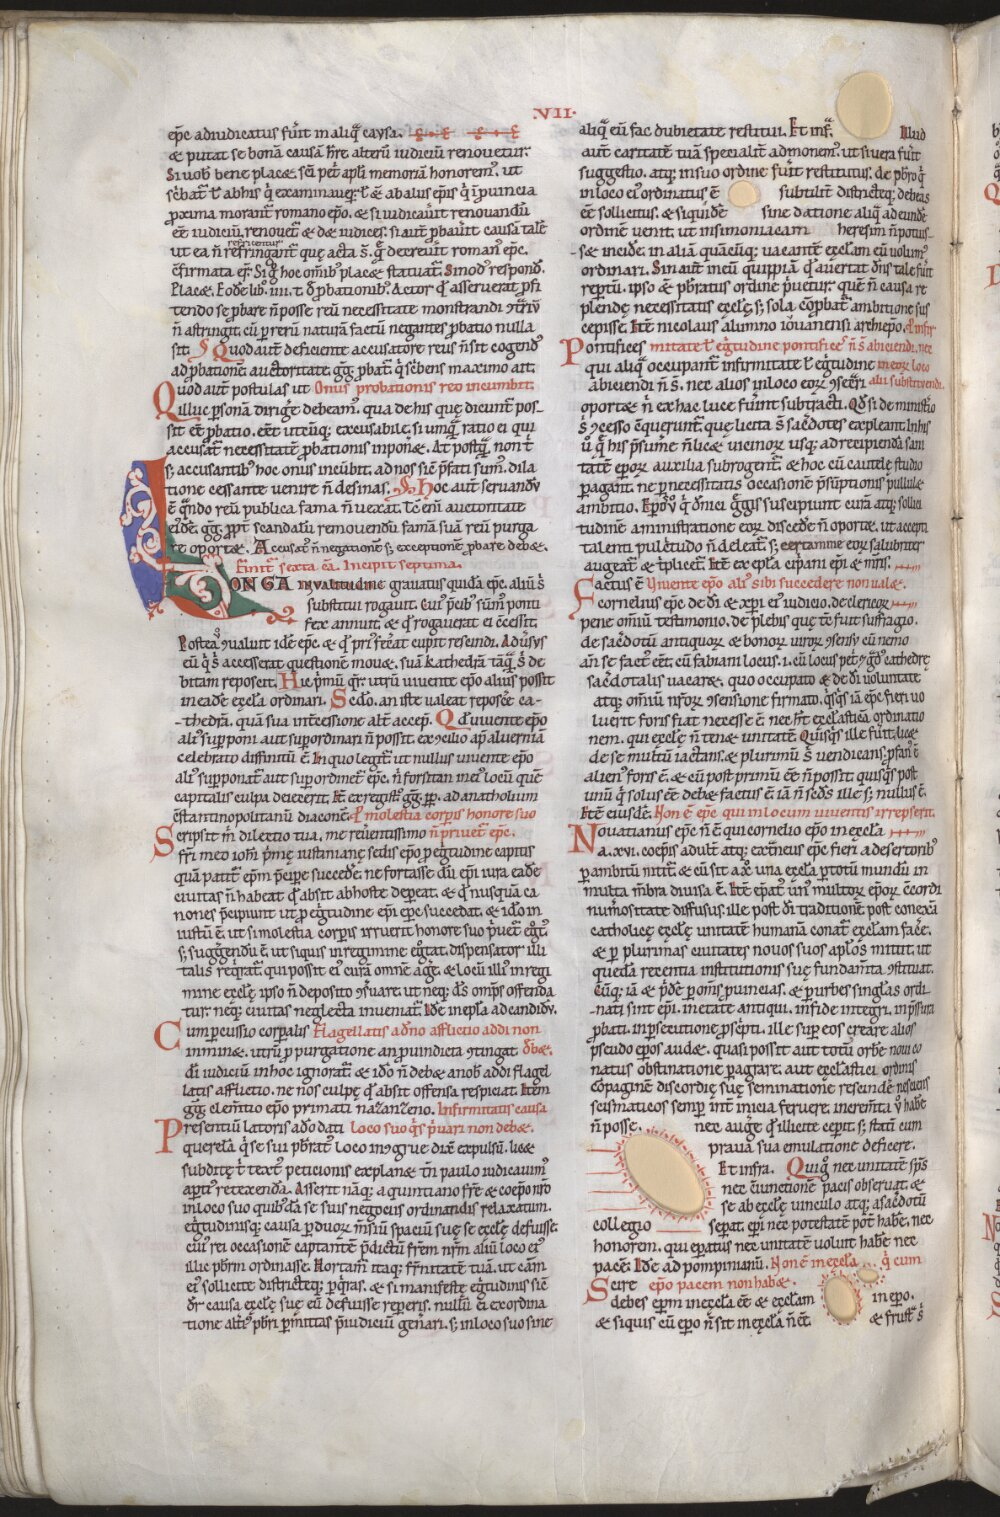 .VII.
ep̄c adiudicatus fuīt in aliq̄ causa.
& putat se bonā causā hr̄e ut alterū iudiciū renouetur.
Si uob bene plac&. sc̄i pet̄ apl̄i memoriā honorem'. ut
sc̄bat̄ ł ab his q̄ examinauer̄. ł &̄ ab aliis ep̄is q̄ ī puincia
p̱xima morant̄ romano ep̄o. & si iudicauīt renouandū
eē iudiciū. renouet̄ & d& iudices. si aut̄ p̱bauīt causā talē
refricentur
ut ea n̄ refringant̄ que acta s̄. q̄ decreuīt roman' ep̄c.
c̄firmata er̄. Si q̄ hoc omīb' plac& statuat̄. Sinod' respond̄.
Plac&. Eod̄e lib' .iiii. t. d̄ p̱bationib'. Actor q̄d asseuerat p̱fi
tendo se p̱bare n̄ posse. reū necessitate monstrandi ɔt̄riū
n̄ astringit. cū p̱ rerū naturā factū negantis p̱batio nulla
sit. ¶ Quod aut̄ deficiente accusatore reus n̄ sit cogend'
ad p̱bationē. auctoritate .gḡ. p̱bat̄ q̄ sc̄bens maximo ait.
Quod aut̄ postulas ut Onus probationis reo incumbit.
illuc p̱sonā dirig̅e debeam'. qua de his quę dicunt̄ pos-
sit eē p̱batio. eēt utcūq; excusabile. si umq̄ ratio ei qui
accusat̄ necessitatē p̱bationis inpon&. At postq̄ non t̄
s; accusantib' hoc onus incūbit. ad nos sic̄ p̱fati sum'. dila
tione cessante uenire n̄ desinas. ¶ Hoc aut̄ seruandū
ē q̄ndo reū publica fama n̄ uexat. Tc̄ enī auctoritate
eiusdē .gḡ. p̱pt̄ scandalū remouendū famā suā reū purga
re oport&. Accusat' n̄ negationē s; exceptionē p̱bare deb&.
Finit̄ sexta cā. Incipit septima.
LONGA inualitudine grauatus quidā ep̄c. aliū s̄
substitui rogauit. cui' p̱cib' sūm' ponti
fex annuit. & q̄d rogauerat ei c̄cessit.
Postea ɔualuit idē ep̄c. & q̄d pri' fec̄at cupit rescindi. Adūsus
eū q̄ s̄ accesserat questionē mou&. suā kathedrā tāq̄ s̄ de
bitam reposcit. Hic p̱mū q̄r̄ utrū uiuente ep̄o alius possit
in eadē ęccl̄a ordinari. Sc̄do. an iste ualeat reposc̄e ca-
-thedrā. quā sua intēcessione alt̄ accep̄. Qd̄ uiuente ep̄o
ali' sup̱poni aut sup̱ordinari n̄ possit. ex ɔcilio ap̱ aluerniā
celebrato diffinitū ē. In quo legit̄. ut nullus uiuente ep̄o
ali' sup̱ponat̄ aut sup̱ordinet̄ ep̄c. n̄ forsitan in ei' locū quē
capitalis culpa deiecerit. It̄ ex regist̄ .gḡ. pp̄. ad anatholium
c̄stantinopolitanū diaconē. P̱ molestia corp̱is honore suo
Scripsit m̄ dilectio tua. me reūentissimo n̄ priuet̄ ep̄c.
fr̄i meo ioh̄i p̱mę iustinianę sedis ep̄o p̱ egtudine capitis
quā patit̄ ep̄m p̱cip̱e succede̅. ne fortasse dū ep̄i iura eadē
ciuitas n̄ habeat q̄d absit ab hoste dep̱eat. & q̄d nusquā ca
nones p̱cipiunt ut p̱ egtudine ep̄i ep̄c succedat. & idō in
iustū ē. ut si molestia corp̱is irruerit honore suo p̱uet̄ eg̅t'.
s; suggęndū ē. ut si quis in regimine eg̅tat. dispensator illi
talis req̄rat̄. qui possit ei' curā omnē ag̅e. & locū illi' in regi
mine ęccl̄ę ipso n̄ deposito ɔs̄uare. ut neq; d̄s omp̄s offenda
tur. neq; ciuitas neglecta inueniat̄. Idē in ep̄la ad candidū.
Cum p̱cussio corp̱alis Flagellatis a dn̄o afflictio addi non
inmin&. utrū p̱ purgatione an p̱ uindicta ɔtingat deb&.
d̄i iudiciū in hoc ignorat̄. & idō n̄ deb& a nob addi flagel
latis afflictio. ne nos culpę q̄d absit offensa respiciat. Item
gḡ. elemtio ep̄o primati nazanzeno. Infirmitatis causa
Presentiū latoris adōdati loco suo q̄s p̱uari non deb&.
querelā q̄ se sui p̱brat' loco inɔgrue dix̄ expulsū. lic&
subditę ł text' peticionis explan& tn̄ paulo iudicauim'
apt̄i' retexenda. Asserit nāq; a quintiano fr̄e & coep̄o nr̄o
in loco suo quib'dā se suis negociis ordinandis relaxatum.
egtudinisq; causa p̱ duor m̄siū spaciū suę se ęccl̄ę defuisse.
cui' rei occasionē captantē p̱dictū frēm nr̄m aliū loco ei'
illic pb̄rm ordinasse. Hortam' itaq; fr̄nitatē tuā. ut cām
ei' sollicite districteq; p̱q̄ras. & si manifeste egtudinis sic̄
dr̄ causa ęccl̄ę suę eū defuisse rep̱eris. nullū ei ex ordina
tione alt̄i' pb̄ri p̱mittas p̱iudiciū gen̄ari. s; in loco suo sine
aliq̄ eū fac dubietate restitui. Et inf̄. Illud
aut̄ caritatē tuā specialit̄ admonem'. ut si uera fuīt
suggestio. atq; in suo ordine fuīt restitutus. de pb̄ro q̄
in loco ei' ordinatus ē subtilit̄ districteq; debeas
eē sollicitus. & siquidē sine datione aliq̄ ad eundē
ordinē uenit. ut in simoniacam heresim n̄ potuis-
-s& incide̅. in aliā quacūq; uacantē ęccl̄am eū uolum'
ordinari. Sin aut̄ in eū quippiā q̄d auertat d̄ns tale fuīt
rep̱tū. ipso & p̱bratus ordine p̱uetur. quē n̄ causa re
plendę necessitatis ęccl̄ę. s; sola c̄p̱bat̄ ambitione sus
cepisse. Itē nicolaus alumno iouanensi archiep̄o. P̱ infir
Pontifices mitate ł egtudine pontifices n̄ s̄ abiciendi. nec
qui aliq̄ occupant̄ infirmitate ł egtudine in eor loco
abiciendi n̄ s̄. nec alios in loco eor ɔsec̄ri alii substituendi.
oport& n̄ ex hac luce fuīnt subtracti. Qd̄ si de ministio
s̄ ɔcesso c̄querunt̄. que licita s̄ sac̄dotes expleant. In his
ū q̄ his p̱sume̅ n̄ lic& uicinor usq; ad recipiendū sani
tatē ep̄or auxilia subrogent̄. & hoc cū cautelę studio
p̱agant. ne p̱ necessitatis occasionē p̱sūptionis pullul&
ambitio. Ep̄or q̄ dn̄ici gregis suscipiunt curā atq; sollici
tudinē aministratione eor discede̅ n̄ oport&. ut accepti
talenti pulc̅tudo n̄ deleat̄. s; certamine eor salubriter
augeat̄ & t̄plicet̄. It̄ ex ep̄la cip̱ani ep̄i & mr̄is.
Factus ē Viuente ep̄o ali' sibi succedere non ual&.
cornelius ep̄c de d̄i & xp̄i ei' iudicio. de clericor
pene omniū testimonio. de plebis que tc̄ fuit suffragio.
de sac̄dotū antiquor & bonor uiror ɔsensu cū nemo
an̄ se fact' eēt. cū fabiani locus .i. cū locus pet̄ & gd' cathedrę
sac̄dotalis uacar&. quo occupato & de d̄i uoluntate
atq; omniū nr̄or ɔsensione firmato. q̄sq̄s iā ep̄c fieri uo
luerit foris fiat necesse ē nec h̄t ęccl̄asticā ordinatio
nem. qui ęccl̄ę n̄ ten& unitatē. Quisq̄s ille fuīt. lic&
de se multū iactans. & plurimū s̄ uendicans. p̱fan' ē
alien' foris ē. & cū post primū eē n̄ possit. quisq̄s post
unū q̄ solus eē deb& factus ē iā n̄ sc̄ds ille s; nullus ē.
Itē eiusdē. Non ē ep̄c qui in locum uiuentis irrepserit.
Nouatianus ep̄c n̄ ē qui cornelio ep̄o in ęccl̄a
A .xvi. coep̄is adult̄ atq; ext̄neus ep̄c fieri a desertorib'
p̱ ambitū nitit̄. & cū sit a xp̄o una ęccl̄a p̱ totū mundū in
multa mēbra diuisa ē. Itē ep̄at' un' multor ep̄or c̄cordi
num̄ositate diffusus. ille post d̄i traditionē post conexā
catholicę ęccl̄ę unitatē humanā conat̄ ęccl̄am fac̄e.
& p̱ plurimas ciuitates nouos suos apl̄os mittit. ut
quedā recentia institutionis suę fundam̄ta ɔstituat.
Cūq; iā & p̱dē p̱ om̄s p̱uincias. & p̱ urbes singulas ordi
-nati sint ep̄i. in etate antiqui. in fide integri. in p̱ssura
p̱bati. in p̱secutione p̱sc̄pti. ille sup̱ eos creare alios
pseudo ep̄os aud&. quasi possit aut totū orbē noui co
natus obstinatione p̱agrare. aut ęccl̄astici ordinis
cōpaginē discordię suę seminatione rescinde̅ nesciens
scismaticos semp̱ int̄ inicia feruere. incrementa ū habe̅
n̄ posse. nec auge̅ q̄d illicite cep̱it. s; statū cum
praua sua emulatione deficere.
Et infra. Qui q̄ nec unitatē sp̄s
nec c̄iunctionē pacis obseruat. &
se ab ęccl̄ę uinculo atq; a sac̄dotū
collegio sep̱at. ep̄i nec potestatē pot̄ habe̅. nec
honorem. qui ep̄atus nec unitatē uoluit habe̅ nec
pacē. Idē ad pompinianū. Non ē in ęccl̄a q̄ cum
Scire ep̄o pacem non hab&.
debes ep̄m in ęccl̄a eē & ęccl̄am in ep̄o.
& si quis cū ep̄o n̄ sit in ęccl̄a n̄ eēt. & frust̄ s̄